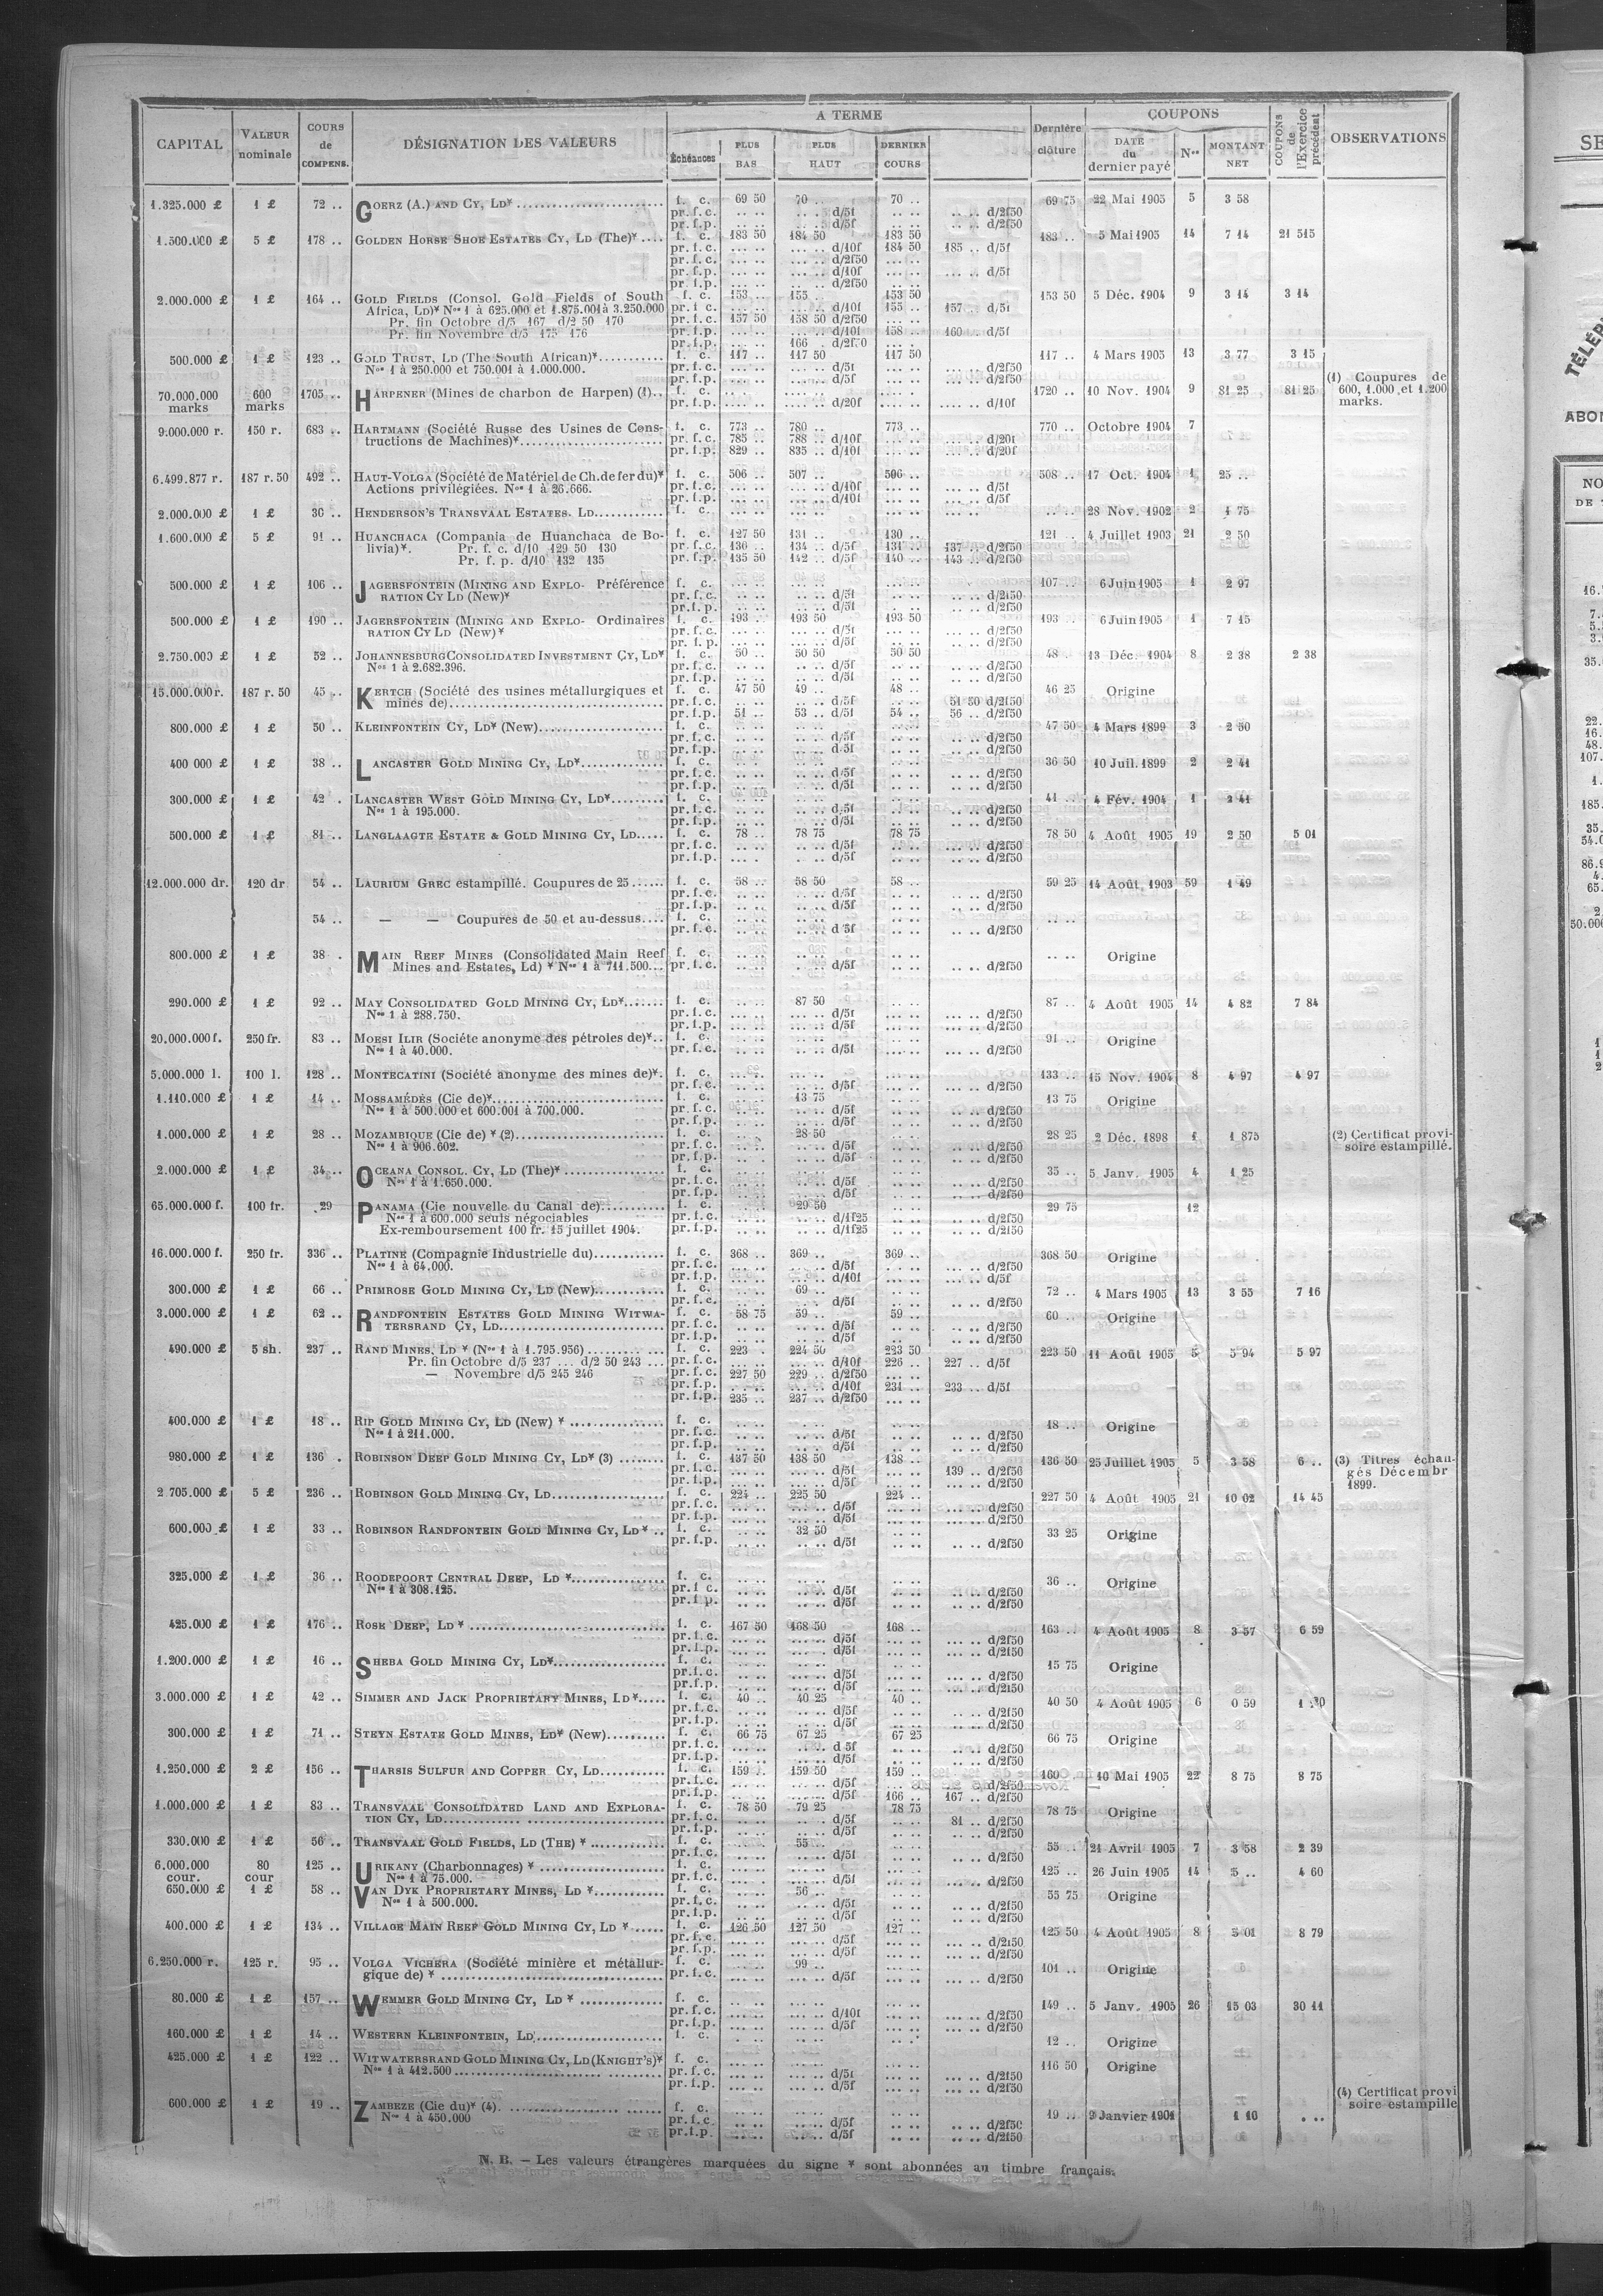 CAPITAL VALEUR nominale COURS de COMPENS. DÉSIGNATION DES VALEURS A TERME Échéances PLUS BAS PLUS HAUT DERNIER COURS Dernière clôture COUPONS DATE du dernier payé Nos MONTANT NET COUPONS de l'Exercice précédent OBSERVATIONS
1.325.000 £ 1 £ 72 .. GOERZ (A.) AND CY, LD* f. c. 69 50 70 .. 70 .. 69 75 22 Mai 1905 5 3 58
pr. f. c. .. .. .. .. d/5f .. .. .. .. d/2f50
pr. f. p. .. .. .. .. d/5f .. .. .. .. d/2f50
1.500.000 £ 5 £ 178 .. GOLDEN HORSE SHOE ESTATES CY, LD (The)* .... f. c. 183 50 184 50 183 50 183 .. 5 Mai 1905 14 7 14 21 515
pr. f. c. ... .. ... .. d/10f 184 50 185 .. d/5f
pr. f. c. ... .. ... .. d/2f50 ... ..
pr. f. p. ... .. ... .. d/10f ... .. ... .. d/5f
pr. f. p. ... .. ... .. d/2f50 ... ..
2.000.000 £ 1 £ 164 .. GOLD FIELDS (Consol. Gold Fields of South f. c. 153 .. 155 .. 153 50 153 50 5 Déc. 1904 9 3 14 3 14
Africa, LD)* Nos 1 à 625.000 et 1.875.001 à 3.250.000 pr. f. c. ... .. ... .. d/10f 155 .. 157 .. d/5f
Pr. fin Octobre d/5 167 d/2 50 170 pr. f. c. 157 50 158 50 d/2f50 ... ..
Pr. fin Novembre d/5 175 176 pr. f. p. ... .. ... .. d/10f 158 .. 160 .. d/5f
pr. f. p. ... .. 166 . d/2f50 ... .
500.000 £ 1 £ 123 .. GOLD TRUST, LD (The South African)* f. c. 117 .. 117 50 117 50 117 .. 4 Mars 1905 13 3 77 3 15
Nos 1 à 250.000 et 750.001 à 1.000.000. pr. f. c. ... .. ... .. d/5f ... .. ... .. d/2f50
pr. f. p. ... .. ... .. d/5f ... .. ... .. d/2f50
70.000.000 marks 600 marks 1705 .. HARPENER (Mines de charbon de Harpen) (1).. f. c. .... .. .... .. .... .. 1720 .. 10 Nov. 1904 9 81 25 81 25 (1) Coupures de 600, 1.000 et 1.200 marks.
pr. f. p. .... .. .... .. d/20f .... .. .... .. d/10f
9.000.000 r. 150 r. 683 .. HARTMANN (Société Russe des Usines de Cons- f. c. 773 .. 780 .. 773 .. 770 .. Octobre 1904 7
tructions de Machines)* pr. f. c. 785 .. 788 .. d/10f ... .. ... .. d/20f
pr. f. p. 829 .. 835 .. d/10f ... .. ... .. d/20f
6.499.877 r. 187 r. 50 492 .. HAUT-VOLGA (Société de Matériel de Ch. de fer du)* f. c. 506 .. 507 .. 506 .. 508 .. 17 Oct. 1904 1 25 ..
Actions privilégiées. Nos 1 à 26.666. pr. f. c. ... .. ... .. d/10f ... .. ... .. d/5f
pr. f. p. ... .. ... .. d/10f ... .. ... .. d/5f
2.000.000 £ 1 £ 36 .. HENDERSON'S TRANSVAAL ESTATES. LD f. c. ... .. ... .. ... .. .. .. 28 Nov. 1902 2 1 75
1.600.000 £ 5 £ 91 .. HUANCHACA (Compania de Huanchaca de Bo- f. c. 127 50 131 .. 130 .. 121 .. 4 Juillet 1903 21 2 50
livia)*. Pr. f. c. d/10 129 50 130 pr. f. c. 130 .. 134 .. d/5f 131 .. 137 .. d/2f50
Pr. f. p. d/10 132 135 pr. f. p. 135 50 142 .. d/5f 140 .. 143 .. d/2f50
500.000 £ 1 £ 106 .. JAGERSFONTEIN (MINING AND EXPLO- Préférence f. c. ... .. ... .. ... .. 107 .. 6 Juin 1905 1 2 97
RATION CY LD (New)* pr. f. c. ... .. ... .. d/5f ... .. .. .. d/2f50
pr. f. p. ... .. ... .. d/5f ... .. .. .. d/2f50
500.000 £ 1 £ 190 .. JAGERSFONTEIN (MINING AND EXPLO- Ordinaires f. c. 193 .. 193 50 193 50 193 .. 6 Juin 1905 1 7 15
RATION CY LD (New)* pr. f. c. ... .. ... .. d/5f ... .. ... .. d/2f50
pr. f. p. ... .. ... .. d/5f ... .. ... .. d/2f50
2.750.000 £ 1 £ 52 .. JOHANNESBURG CONSOLIDATED INVESTMENT CY, LD* f. c. 50 .. 50 50 50 50 48 .. 13 Déc. 1904 8 2 38 2 38
Nos 1 à 2.682.396. pr. f. c. .. .. .. .. d/5f .. .. .. .. d/2f50
pr. f. p. .. .. .. .. d/5f .. .. .. .. d/2f50
15.000.000 r. 187 r. 50 45 .. KERTCH (Société des usines métallurgiques et f. c. 47 50 49 .. 48 .. 46 25 Origine
mines de) pr. f. c. .. .. .. .. d/5f .. .. 51 50 d/2f50
pr. f. p. 51 .. 53 .. d/5f 54 .. 56 .. d/2f50
800.000 £ 1 £ 50 .. KLEINFONTEIN CY, LD* (New) f. c. .. .. .. .. .. .. 47 50 4 Mars 1899 3 2 50
pr. f. c. .. .. .. .. d/5f .. .. .. .. d/2f50
pr. f. p. .. .. .. .. d 5f .. .. .. .. d/2f50
400 000 £ 1 £ 38 .. LANCASTER GOLD MINING CY, LD* f. c. .. .. .. .. .. .. 36 50 10 Juil. 1899 2 2 41
pr. f. c. .. .. .. .. d/5f .. .. .. .. d/2f50
pr. f. p. .. .. .. .. d/5f .. .. .. .. d/2f50
300.000 £ 1 £ 42 . LANCASTER WEST GOLD MINING CY, LD* f. c. .. .. .. .. .. .. 41 .. 4 Fév. 1904 1 2 41
Nos 1 à 195.000. pr. f. c. .. .. .. .. d/5f .. .. .. .. d/2f50
pr. f. p. .. .. .. .. d/5f .. .. .. .. d/2f50
500.000 £ 1 £ 81 .. LANGLAAGTE ESTATE & GOLD MINING CY, LD..... f. c. 78 .. 78 75 78 75 78 50 4 Août 1905 19 2 50 5 01
pr. f. c. .. .. .. .. d/5f .. .. .. .. d/2f50
pr. f. p. .. .. .. .. d/5f .. .. .. .. d/2f50
12.000.000 dr. 120 dr 54 .. LAURIUM GREC estampillé. Coupures de 25 ...... f. c. 58 .. 58 50 58 .. 59 25 14 Août 1903 59 1 49
pr. f. c. .. .. .. .. d/5f .. .. .. .. d/2f50
pr. f. p. .. .. .. .. d/5f .. .. .. .. d/2f50
54 .. — — Coupures de 50 et au-dessus.... f. c. .. .. .. .. .. .. .. ..
pr. f. c. .. .. .. .. d 5f .. .. .. .. d/2f50
800.000 £ 1 £ 38 . MAIN REEF MINES (Consolidated Main Reef f. c. .. .. .. .. .. .. .. .. Origine
Mines and Estates, Ld) * Nos 1 à 711.500... pr. f. c. .. .. .. .. d/5f .. .. .. .. d/2f50
290.000 £ 1 £ 92 .. MAY CONSOLIDATED GOLD MINING CY, LD* f. c. .. .. 87 50 .. .. 87 .. 4 Août 1905 14 4 82 7 84
Nos 1 à 288.750. pr. f. c. .. .. .. .. d/5f .. .. .. .. d/2f50
pr. f. p. .. .. .. .. d/5f .. .. .. .. d/2f50
20.000.000 f. 250 fr. 83 .. MOESI ILIR (Sociéte anonyme des pétroles de)*.. f. c. ... .. ... .. ... .. 91 .. Origine
Nos 1 à 40.000. pr. f. c. ... .. ... .. d/5f ... .. ... .. d/2f50
5.000.000 l. 100 l. 128 .. MONTECATINI (Société anonyme des mines de)*. f. c. ... .. ... .. ... .. 133 .. 15 Nov. 1904 8 4 97 4 97
pr. f. c. ... .. ... .. d/5f ... .. ... .. d/2f50
1.110.000 £ 1 £ 14 .. MOSSAMÉDÈS (Cie de)* f. c. .. .. 13 75 .. .. 13 75 Origine
Nos 1 à 500.000 et 600.001 à 700.000. pr. f. c. .. .. .. .. d/5f .. .. .. .. d/2f50
pr. f. p. .. .. .. .. d/5f .. .. .. .. d/2f50
1.000.000 £ 1 £ 28 .. MOZAMBIQUE (Cie de) * (2) f. c. .. .. 28 50 .. .. 28 25 2 Déc. 1898 1 1 875 (2) Certificat provi-
Nos 1 à 906.602. pr. f. c. .. .. .. .. d/5f .. .. .. .. d/2f50 soire estampillé.
pr. f. p. .. .. .. .. d/5f .. .. .. .. d/2f50
2.000.000 £ 1 £ 34 .. OCEANA CONSOL. CY, LD (The)* f. c. .. .. .. .. .. .. 35 .. 5 Janv. 1905 4 1 25
Nos 1 à 1.650.000. pr. f. c. .. .. .. .. d/5f .. .. .. .. d/2f50
pr. f. p. .. .. .. .. d/5f .. .. .. .. d/2f50
65.000.000 f. 100 fr. 29 PANAMA (Cie nouvelle du Canal de) f. c. .. .. 29 50 .. .. 29 75 12
Nos 1 à 600.000 seuls négociables pr. f. c. .. .. .. .. d/1f25 .. .. .. .. d/2f50
Ex-remboursement 100 fr. 15 juillet 1904. pr. f. p. .. .. .. .. d/1f25 .. .. .. .. d/2f50
16.000.000 f. 250 fr. 336 .. PLATINE (Compagnie Industrielle du) f. c. 368 .. 369 .. 369 .. 368 50 Origine
Nos 1 à 64.000. pr. f. c. ... .. ... .. d/5f ... .. ... .. d/2f50
pr. f. p. ... .. ... .. d/10f ... .. ... .. d/5f
300.000 £ 1 £ 66 .. PRIMROSE GOLD MINING CY, LD (New) f. c. .. .. 69 .. .. .. 72 .. 4 Mars 1905 13 3 55 7 16
pr. f. c. .. .. .. .. d/5f .. .. .. .. d/2f50
3.000.000 £ 1 £ 62 .. RANDFONTEIN ESTATES GOLD MINING WITWA- f. c. 58 75 59 .. 59 .. 60 .. Origine
TERSRAND CY, LD pr. f. c. .. .. .. .. d/5f .. .. .. .. d/2f50
pr. f. p. .. .. .. .. d/5f .. .. .. .. d/2f50
490.000 £ 5 sh. 237 .. RAND MINES, LD * (Nos 1 à 1.795.956) f. c. 223 . 224 50 223 50 223 50 11 Août 1905 5 5 94 5 97
Pr. fin Octobre d/5 237 ... d/2 50 243 ... pr. f. c. ... .. ... .. d/10f 226 .. 227 .. d/5f
— Novembre d/5 245 246 pr. f. c. 227 50 229 .. d/2f50 ... ..
pr. f. p. ... .. ... .. d/10f 231 .. 233 .. d/5f
pr. f. p. 235 .. 237 .. d/2f50 ... ..
400.000 £ 1 £ 18 .. RIP GOLD MINING CY, LD (New) * f. c. .. .. .. .. .. .. 18 .. Origine
Nos 1 à 211.000. pr. f. c. .. .. .. .. d/5f .. .. .. .. d/2f50
pr. f. p. .. .. .. .. d/5f .. .. .. .. d/2f50
980.000 £ 1 £ 136 . ROBINSON DEEP GOLD MINING CY, LD* (3) f. c. 137 50 138 50 138 .. 136 50 25 Juillet 1905 5 3 58 6 .. (3) Titres échan-
pr. f. c. ... .. ... .. d/5f ... .. 139 .. d/2f50 gés Décembr
pr. f. p. ... .. ... .. d/5f ... .. ... .. d/2f50 1899.
2 705.000 £ 5 £ 236 .. ROBINSON GOLD MINING CY, LD f. c. 224 .. 225 50 224 .. 227 50 4 Août 1905 21 10 02 14 45
pr. f. c. ... .. ... .. d/5f ... .. ... .. d/2f50
pr. f. p. ... .. ... .. d/5f ... .. ... .. d/2f50
600.000 £ 1 £ 33 .. ROBINSON RANDFONTEIN GOLD MINING CY, LD* .. f. c. .. .. 32 50 .. .. 33 25 Origine
pr. f. p. .. .. .. .. d/5f .. .. .. .. d/2f50
325.000 £ 1 £ 36 .. ROODEPOORT CENTRAL DEEP, LD * f. c. .. .. .. .. .. .. 36 .. Origine
Nos 1 à 308.125. pr. f c. .. .. .. .. d/5f .. .. .. .. d/2f50
pr. f p. .. .. .. .. d/5f .. .. .. .. d/2f50
425.000 £ 1 £ 176 .. ROSE DEEP, LD * f. c. 167 50 168 50 168 .. 163 .. 4 Août 1905 8 3 57 6 59
pr. f. c. ... .. ... .. d/5f ... .. ... .. d/2f50
pr. f. p. ... .. ... .. d/5f ... .. ... .. d/2f50
1.200.000 £ 1 £ 16 .. SHEBA GOLD MINING CY, LD* f. c. .. .. .. .. .. .. 15 75 Origine
pr. f. c. .. .. .. .. d/5f .. .. .. .. d/2f50
pr. f. p. .. .. .. .. d/5f .. .. .. .. d/2f50
3.000.000 £ 1 £ 42 .. SIMMER AND JACK PROPRIETARY MINES, LD*..... f. c. 40 .. 40 25 40 .. 40 50 4 Août 1905 6 0 59
pr. f. c. .. .. .. .. d/5f .. .. .. .. d/2f50
pr. f. p. .. .. .. .. d/5f .. .. .. .. d/2f50
300.000 £ 1 £ 71 .. STEYN ESTATE GOLD MINES, LD* (New) f. c. 66 75 67 25 67 25 66 75 Origine
pr. f. c. .. .. .. .. d 5f .. .. .. .. d/2f50
pr. f. p. .. .. .. .. d/5f .. .. .. .. d/2f50
1.250.000 £ 2 £ 156 .. THARSIS SULFUR AND COPPER CY, LD f. c. 159 .. 159 50 159 .. 160 .. 10 Mai 1905 22 8 75 8 75
pr. f. c. ... .. ... .. d/5f ... .. ... .. d/2f50
pr. f. p. ... .. ... .. d/5f 166 .. 167 .. d/2f50
1.000.000 £ 1 £ 83 .. TRANSVAAL CONSOLIDATED LAND AND EXPLORA- f. c. 78 50 79 25 78 75 78 75 Origine
TION CY, LD pr. f. c. .. .. .. .. d/5f .. .. 81 .. d/2f50
pr. f. p. .. .. .. .. d/5f .. .. .. .. d/2f50
330.000 £ 1 £ 56 .. TRANSVAAL GOLD FIELDS, LD (THE) * f. c. .. .. 55 .. .. .. 55 .. 21 Avril 1905 7 3 58 2 39
pr. f. c. .. .. .. .. d/5f .. .. .. .. d/2f50
6.000.000 cour. 80 cour 125 .. URIKANY (Charbonnages) * f. c. ... .. ... .. ... .. 125 .. 26 Juin 1905 14 5 .. 4 60
Nos 1 à 75.000. pr. f. c. ... .. ... .. d/5f ... .. ... .. d/2f50
650.000 £ 1 £ 58 .. VAN DYK PROPRIETARY MINES, LD * f. c. .. .. 56 .. .. .. 55 75 Origine
Nos 1 à 500.000. pr. f. c. .. .. .. .. d/5f .. .. .. .. d/2f50
pr. f. p. .. .. .. .. d/5f .. .. .. .. d/2f50
400.000 £ 1 £ 134 .. VILLAGE MAIN REEF GOLD MINING CY, LD * ..... f. c. 126 50 127 50 127 .. 125 50 4 Août 1905 8 5 01 8 79
pr. f. c. ... .. ... .. d/5f ... .. ... .. d/2f50
pr. f. p. ... .. ... .. d/5f ... .. ... .. d/2f50
6.250.000 r. 125 r. 95 .. VOLGA VICHERA (Société minière et métallur- f. c. ... .. 99 .. ... .. 101 .. Origine
gique de) * pr. f. c. ... .. ... .. d/5f ... .. ... .. d/2f50
80.000 £ 1 £ 157 .. WEMMER GOLD MINING CY, LD * f. c. ... .. ... .. ... .. 149 .. 5 Janv. 1905 26 15 03 30 11
pr. f. c. ... .. ... .. d/10f ... .. ... .. d/2f50
pr. f. p. ... .. ... .. d/5f ... .. ... .. d/2f50
160.000 £ 1 £ 14 .. WESTERN KLEINFONTEIN, LD f. c. .. .. .. .. .. .. 12 .. Origine
425.000 £ 1 £ 122 .. WITWATERSRAND GOLD MINING CY, LD (KNIGHT'S)* f. c. ... .. ... .. ... .. 116 50 Origine
Nos 1 à 412.500 pr. f. c. ... .. ... .. d/5f ... .. ... .. d/2f50
pr. f. p. ... .. ... .. d/5f ... .. ... .. d/2f50
600.000 £ 1 £ 19 .. ZAMBEZE (Cie du)* (4). f. c. .. .. .. .. .. .. 19 .. 9 Janvier 1901 1 10 . .. (4) Certificat provi
Nos 1 à 450.000 pr. f. c. .. .. .. .. d/5f .. .. .. .. d/2f50 soire estampille
pr. f. p. .. .. .. .. d/5f .. .. .. .. d/2f50
N. B. — Les valeurs étrangères marquées du signe * sont abonnées au timbre français.